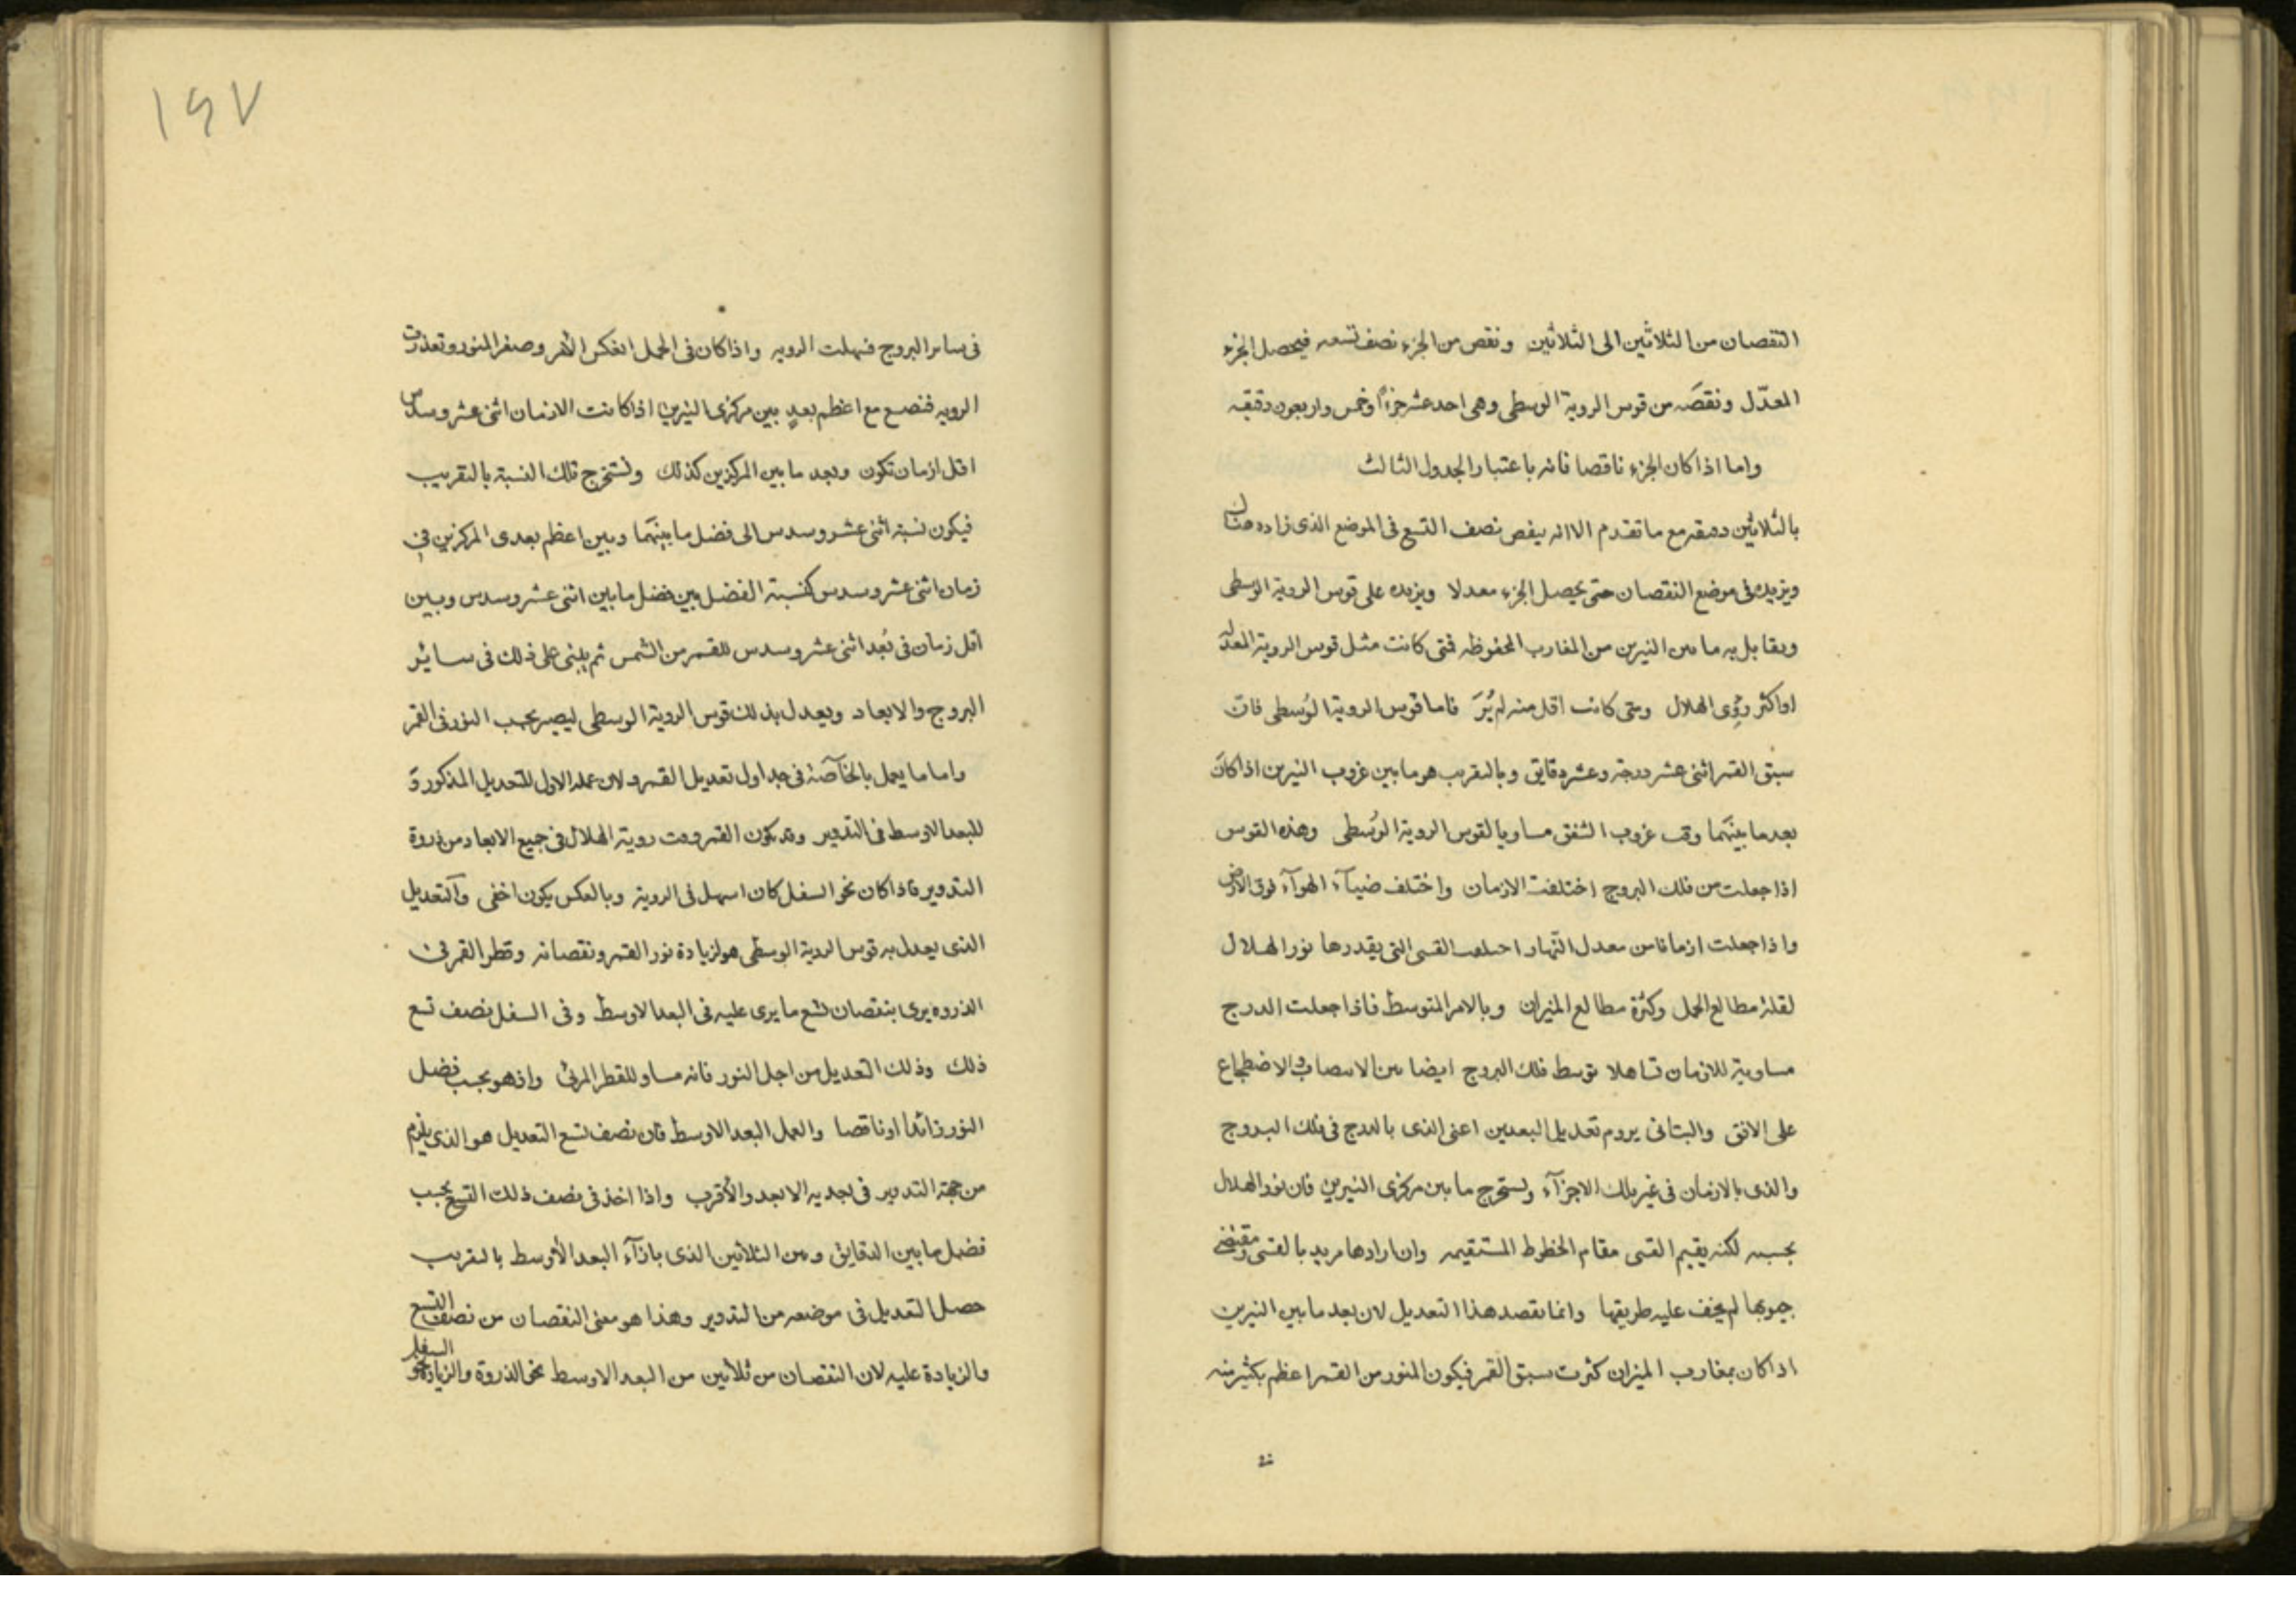 النقصان من الثلاثين الى الثلاثين ونقص من الجزء نصف تسعه فيحصل الجزء
المعدّل ونقصَه من قوس الروية الوسطى وهى احد عشر جزءًا وخمس واربعون دقيقه
واما اذا كان الجزء ناقصا فانه باعتبار الجدول الثالث
بالثلاثين دقيقه مع ما تقدم الا انه ينقص نصف التسع فى الموضع الذى زاده هناك
ويزيده فى موضع النقصان حتى يحصل الجزء معدلا ويزيده على قوس الروية الوسطى
ويقابل به ما بين النيرين من المغارب المحفوظه فمتى كانت مثل قوس الروية المعدله
او اكثر رؤى الهلال ومتى كانت اقل منه لم يُرَ فاما قوس الروية الوُسطى فان
سبق القمر اثنى عشر درجة وعشر دقايق وبالتقريب هو ما بين غروب النيرين اذا كان
بعد ما بينهما وقت غروب الشفق مساويا لقوس الروية الوُسطى وهذه القوس
اذا جعلت من فلك البروج اختلفت الازمان واختلف ضيآء الهوآء فوق الارض
واذا جعلت ازمانا من معدل النهار اختلفت القسى التى يقدرها نور الهلال
لقلة مطالع الحمل وكثرة مطالع الميزان وبالامر المتوسط فاذا جعلت الدرج
مساوية للازمان تساهلا توسط فلك البروج ايضا بين الانتصاب والاضطجاع
على الافق والبتانى يروم تعديل البعدين اعنى الذى بالدرج فى فلك البروج
والذى بالازمان فى غير تلك الاجزآء ويستخرج ما بين مركزى النيرين فان نور الهلال
بحسبه لكنه يقيم القسى مقام الخطوط المستقيمه وان ارادها مريد بالقسى ومقتضى
جيوبها لم يخف عليه طريقها وانما نقصد هذا التعديل لان بعد ما بين النيرين
اذا كان بمغارب الميزان كثرت سبق القمر فيكون المنور من القمر اعظم بكثير منه
١٤٧
فى ساير البروج فسهلت الرويه واذا كان فى الحمل انعكس الأمر وصغر المنور وتعذرت
الرويه فنضع مع اعظم بعدٍ بين مركزى النيرين اذا كانت الازمان اثنى عشر وسدس
اقل ازمان تكون وبعد ما بين المركزين كذلك ونستخرج تلك النسبة بالتقريب
فيكون نسبة اثنى عشر وسدس الى فضل ما بينهما وبين اعظم بعدى المركزين فى
زمان اثنى عشر وسدس كنسبة الفضل بين فضل ما بين اثنى عشر وسدس وبين
اقل زمان فى بُعد اثنى عشر وسدس للقمر من الشمس ثم يبنى على ذلك فى سائر
البروج والابعاد ويعدل بذلك قوس الروية الوسطى ليصير بحسب النور فى القمر
واما ما يعمل بالخآصّة فى جداول تعديل القمر فلان عمله الاول للتعديل المذكور وَ
للبعد الاوسط فى التدوير وقد يكون القمر وقت روية الهلال فى جميع الابعاد من ذروة
التدوير فاذا كان نحو السفل كان اسهل فى الروية وبالعكس يكون اخفى والتعديل
الذى يعدل به قوس الروية الوسطى هو لزيادة نور القمر ونقصانه وقطر القمر فى
الذروه يرى بنقصان تسع ما يرى عليه فى البعد الاوسط وفى السفل نصف تسع
ذلك وذلك التعديل من اجل النور فانه مساو للقطر المرئى واذ هو بحسب فضل
النور زائدًا او ناقصا والعمل البعد الاوسط فان نصف تسع التعديل هو الذى يلزم
من جهة التدوير فى بعديه الابعد والأقرب واذا اخذ فى نصف ذلك التسع بحسب
فضل ما بين الدقايق وبين الثلاثين الذى بازآء البعد الأوسط بالتقريب
حصل التعديل فى موضعه من التدوير وهذا هو معنى النقصان من نصف التسع
والزيادة عليه لان النقصان من ثلاثين من البعد الاوسط نحو الذروة والزيادة نحو السفل